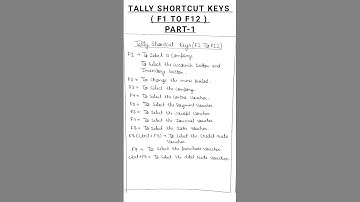 TALLY SHORTCUT KEYS
( F1 TO F12 )
PART-1
Tally Shortcut Keys (F1 To F12)
F1 → To Select a Company
To Select the accounts button and
Inventory button.
F2 = To Change the menu period.
F3 = To Select the company.
F4 = To Select the contra voucher.
F5 = To Select the Payment voucher
F6 = To Select the receipt voucher
F7 = To Select the Journal voucher
F8 = To Select the Sales voucher.
F8 (Ctrl+F8) = To Select the Credit note
voucher.
F9 = To Select the purchase voucher.
Ctrl+F9 = To Select the debit Note voucher